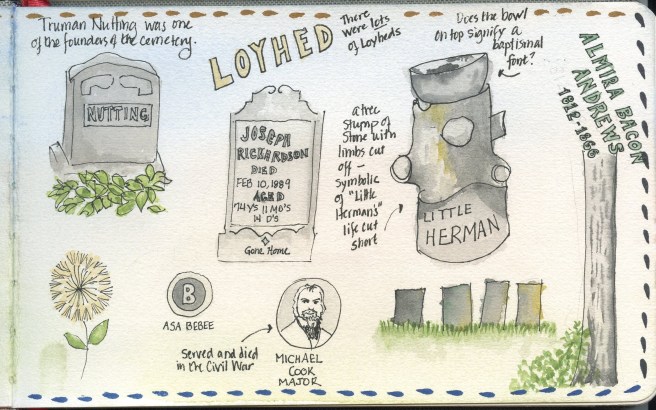 Truman Nutting was one
of the founders of the cemetery.
NUTTING
LOYHED
There
were lots
of Loyheds
JOSEPH
RICHARDSON
DIED
FEB 10, 1889
AGED
74 Y'S 11 MO'S
Gone Home
a tree
stump of
stone with
limbs cut
off –
symbolic
of "Little
Herman's"
life cut
short
Does the bowl
on top signify a
baptismal
font?
LITTLE
HERMAN
ALMIRA BACON
ANDREWS
1812-1866
B
ASA BEBEE
Served and died
in the Civil War
MICHAEL
COOK
MAJOR